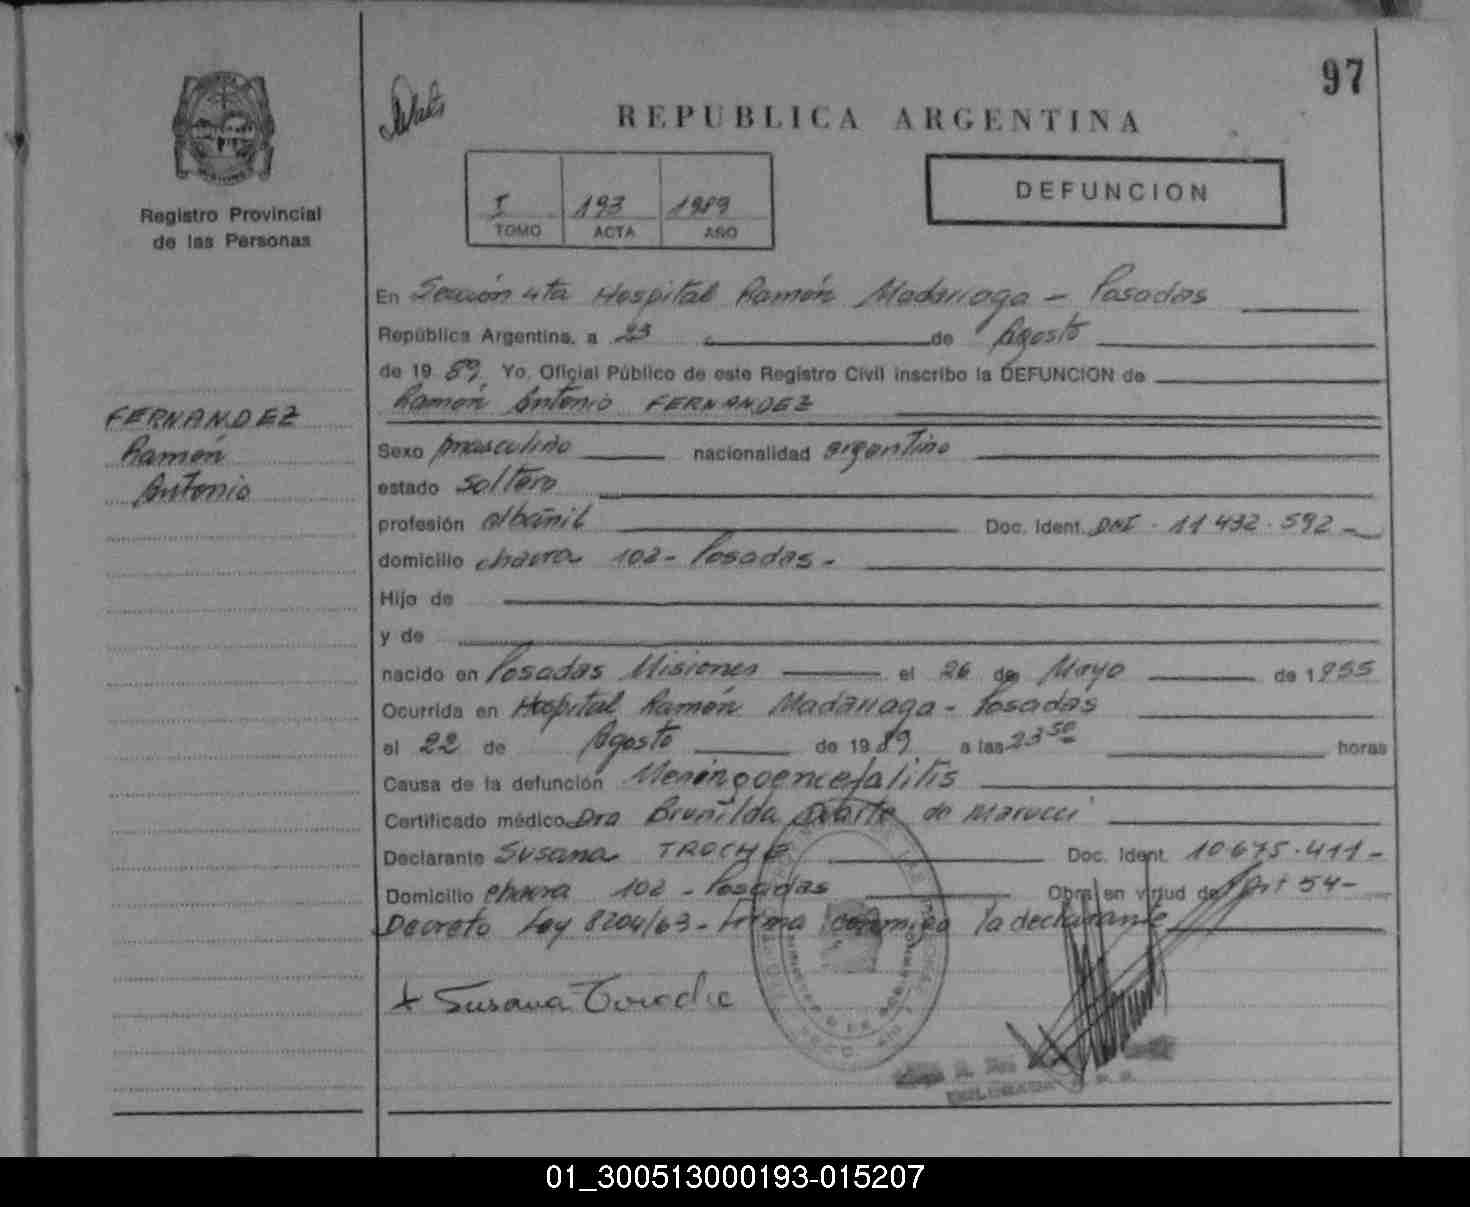 97
REPUBLICA ARGENTINA
Registro Provincial
de las Personas
I 193 1989
TOMO ACTA AÑO
DEFUNCION
En Sección 4ta Hospital Ramón Madariaga - Posadas
República Argentina, a 23 de Agosto
de 19 89. Yo, Oficial Público de este Registro Civil inscribo la DEFUNCION de
Ramón Antonio FERNANDEZ
FERNANDEZ
Ramón
Antonio
Sexo masculino nacionalidad argentino
estado soltero
profesión albañil Doc. Ident. DNI - 11 432 . 592 -
domicilio chacra 102 - Posadas -
Hijo de
y de
nacido en Posadas Misiones el 26 de Mayo de 1955
Ocurrida en Hospital Ramón Madariaga - Posadas
el 22 de Agosto de 19 89 a las 23 50 horas
Causa de la defunción Meningoencefalitis
Certificado médico Dra Brunilda Duarte de Marucci
Declarante Susana TROCHE Doc. Ident. 10 675 . 411 -
Domicilio chacra 102 - Posadas Obra en virtud de Art 54 -
Decreto Ley 8204/63 - Firma conmigo la declarante
Susana Troche
01_300513000193-015207